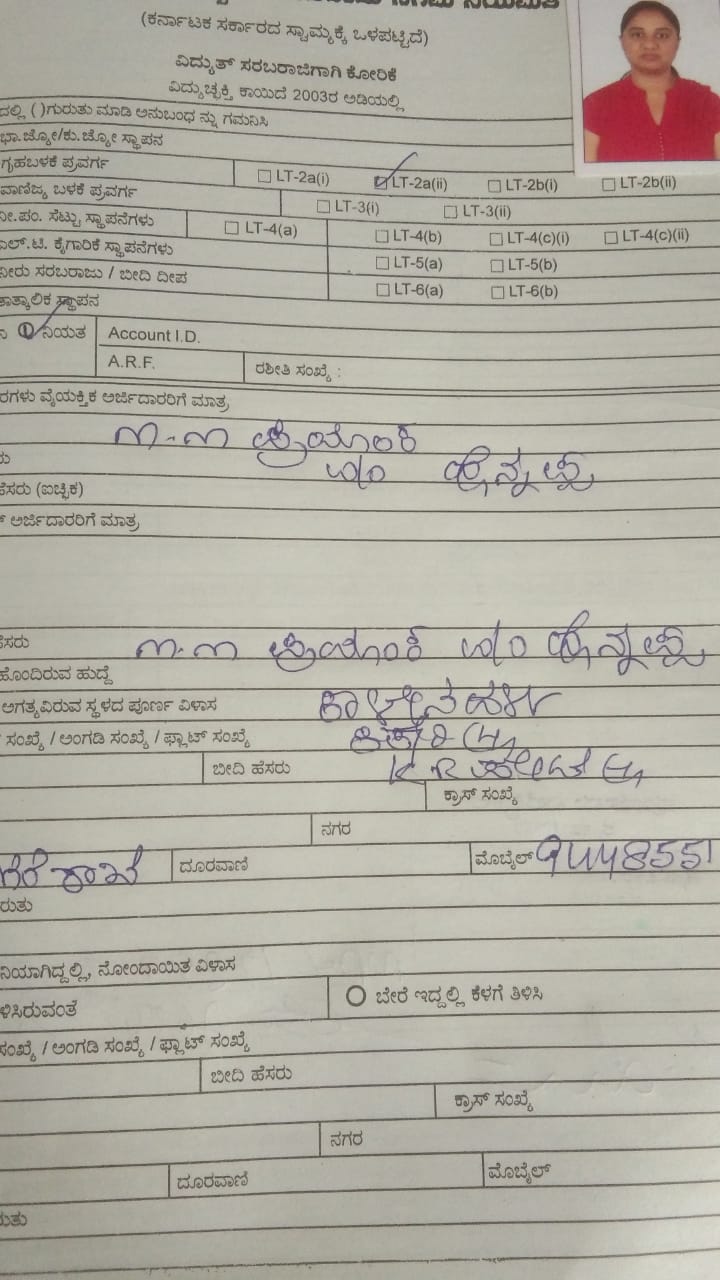 (ಕರ್ನಾಟಕ ಸರ್ಕಾರದ ಸ್ವಾಮ್ಯಕ್ಕೆ ಒಳಪಟ್ಟಿದೆ)
ವಿದ್ಯುತ್ ಸರಬರಾಜಿಗಾಗಿ ಕೋರಿಕೆ
ವಿದ್ಯುಚ್ಛಕ್ತಿ ಕಾಯಿದೆ 2003ರ ಅಡಿಯಲ್ಲಿ
ದಲ್ಲಿ ( )ಗುರುತು ಮಾಡಿ ಅನುಬಂಧ ನ್ನು ಗಮನಿಸಿ
ಭಾ.ಜ್ಯೋ/ಕು.ಜ್ಯೋ ಸ್ಥಾಪನ
ಗೃಹಬಳಕೆ ಪ್ರವರ್ಗ LT-2a(i) LT-2a(ii) LT-2b(i) LT-2b(ii)
ವಾಣಿಜ್ಯ ಬಳಕೆ ಪ್ರವರ್ಗ LT-3(i) LT-3(ii)
ನೀ.ಪಂ. ಸೆಟ್ಟು ಸ್ಥಾಪನೆಗಳು LT-4(a) LT-4(b) LT-4(c)(i) LT-4(c)(ii)
ಎಲ್.ಟಿ. ಕೈಗಾರಿಕೆ ಸ್ಥಾಪನೆಗಳು LT-5(a) LT-5(b)
ನೀರು ಸರಬರಾಜು / ಬೀದಿ ದೀಪ LT-6(a) LT-6(b)
ತಾತ್ಕಾಲಿಕ ಸ್ಥಾಪನ
ನಿಯತ Account I.D.
A.R.F. ರಶೀತಿ ಸಂಖ್ಯೆ :
ರಗಳು ವೈಯಕ್ತಿಕ ಅರ್ಜಿದಾರರಿಗೆ ಮಾತ್ರ
ಪ್ರಿಯಾಂಕ
ರು
ಹೆಸರು (ಐಚ್ಛಿಕ)
ಅರ್ಜಿದಾರರಿಗೆ ಮಾತ್ರ
ಹೆಸರು ಪ್ರಿಯಾಂಕ
ಹೊಂದಿರುವ ಹುದ್ದೆ
ಅಗತ್ಯವಿರುವ ಸ್ಥಳದ ಪೂರ್ಣ ವಿಳಾಸ
ಸಂಖ್ಯೆ / ಅಂಗಡಿ ಸಂಖ್ಯೆ / ಫ್ಲಾಟ್ ಸಂಖ್ಯೆ
ಬೀದಿ ಹೆಸರು K R
ಕ್ರಾಸ್ ಸಂಖ್ಯೆ
ನಗರ
ದೂರವಾಣಿ ಮೊಬೈಲ್ 9448551
ರುತು
ನಿಯಾಗಿದ್ದಲ್ಲಿ, ನೋಂದಾಯಿತ ವಿಳಾಸ
ಳಿಸಿರುವಂತೆ ಬೇರೆ ಇದ್ದಲ್ಲಿ ಕೆಳಗೆ ತಿಳಿಸಿ
ಸಂಖ್ಯೆ / ಅಂಗಡಿ ಸಂಖ್ಯೆ / ಫ್ಲಾಟ್ ಸಂಖ್ಯೆ
ಬೀದಿ ಹೆಸರು
ಕ್ರಾಸ್ ಸಂಖ್ಯೆ
ನಗರ
ದೂರವಾಣಿ ಮೊಬೈಲ್
ರುತು